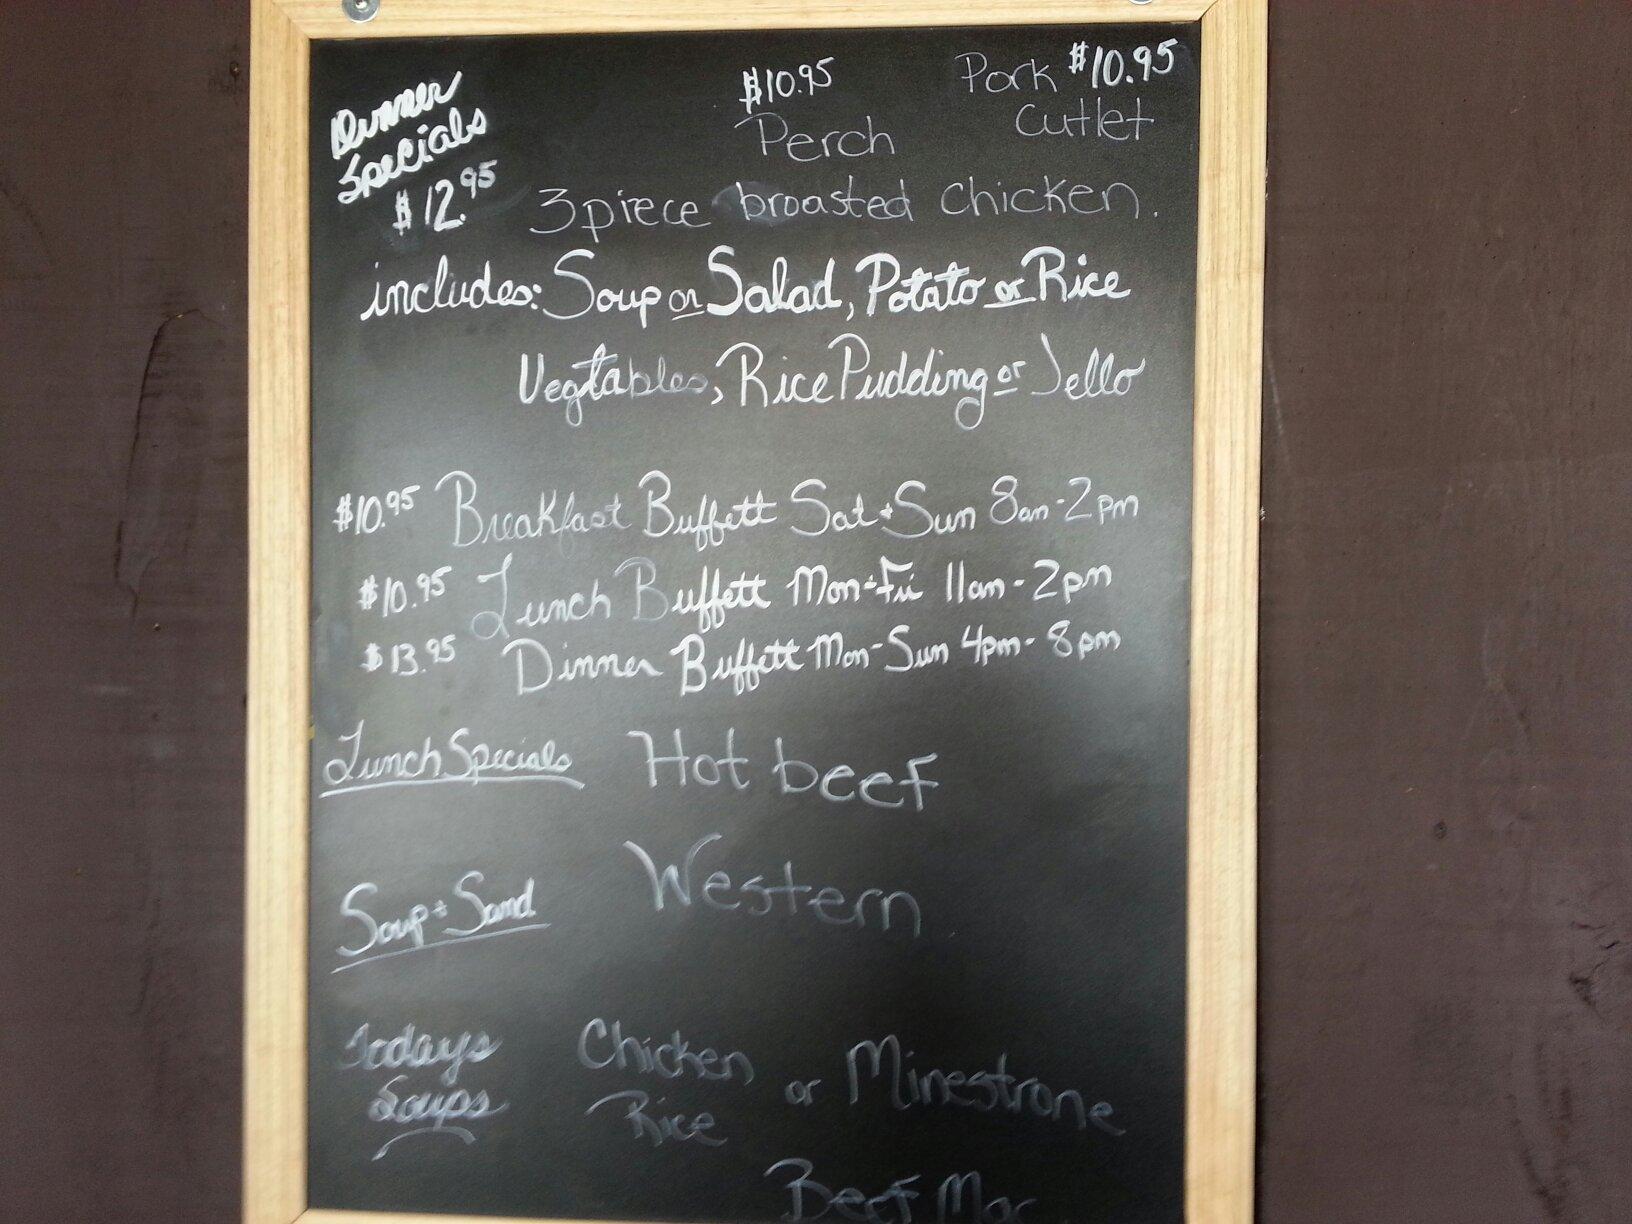 Dinner Specials
$10.95 Perch
Pork Cutlet $10.95
$12.95 3 piece broasted chicken.
includes: Soup or Salad, Potato or Rice
Vegtables, Rice Pudding or Jello
$10.95 Breakfast Buffett Sat + Sun 8am - 2pm
$10.95 Lunch Buffett Mon-Fri 11am - 2pm
$13.95 Dinner Buffett Mon-Sun 4pm - 8pm
Lunch Specials Hot beef
Soup + Sand Western
Todays Soups Chicken Rice or Minestrone
Beef Mac